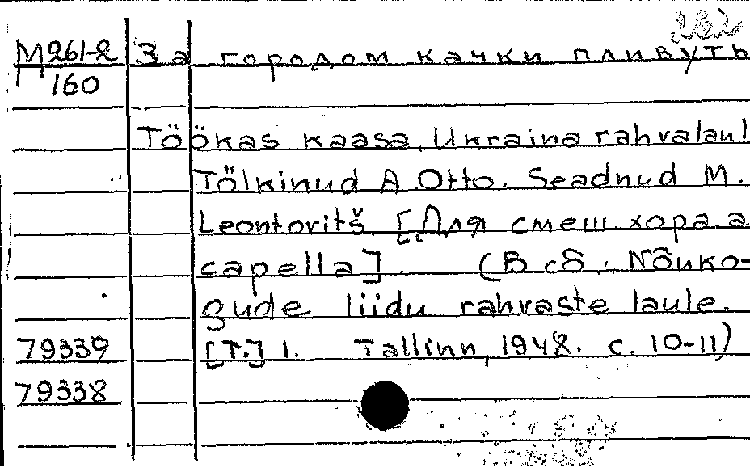 М261-2 За городом качки пливуть
160
Töökas kaasa. Ukraina rahvalaul
Tõlkinud A Otto. Seadnud M.
Leontovitš [Для смеш хора a
capella] (В сб.: Nõuko-
gude liidu rahvaste laule.
79339 [T.] 1. Tallinn, 1948. с. 10-11)
79338